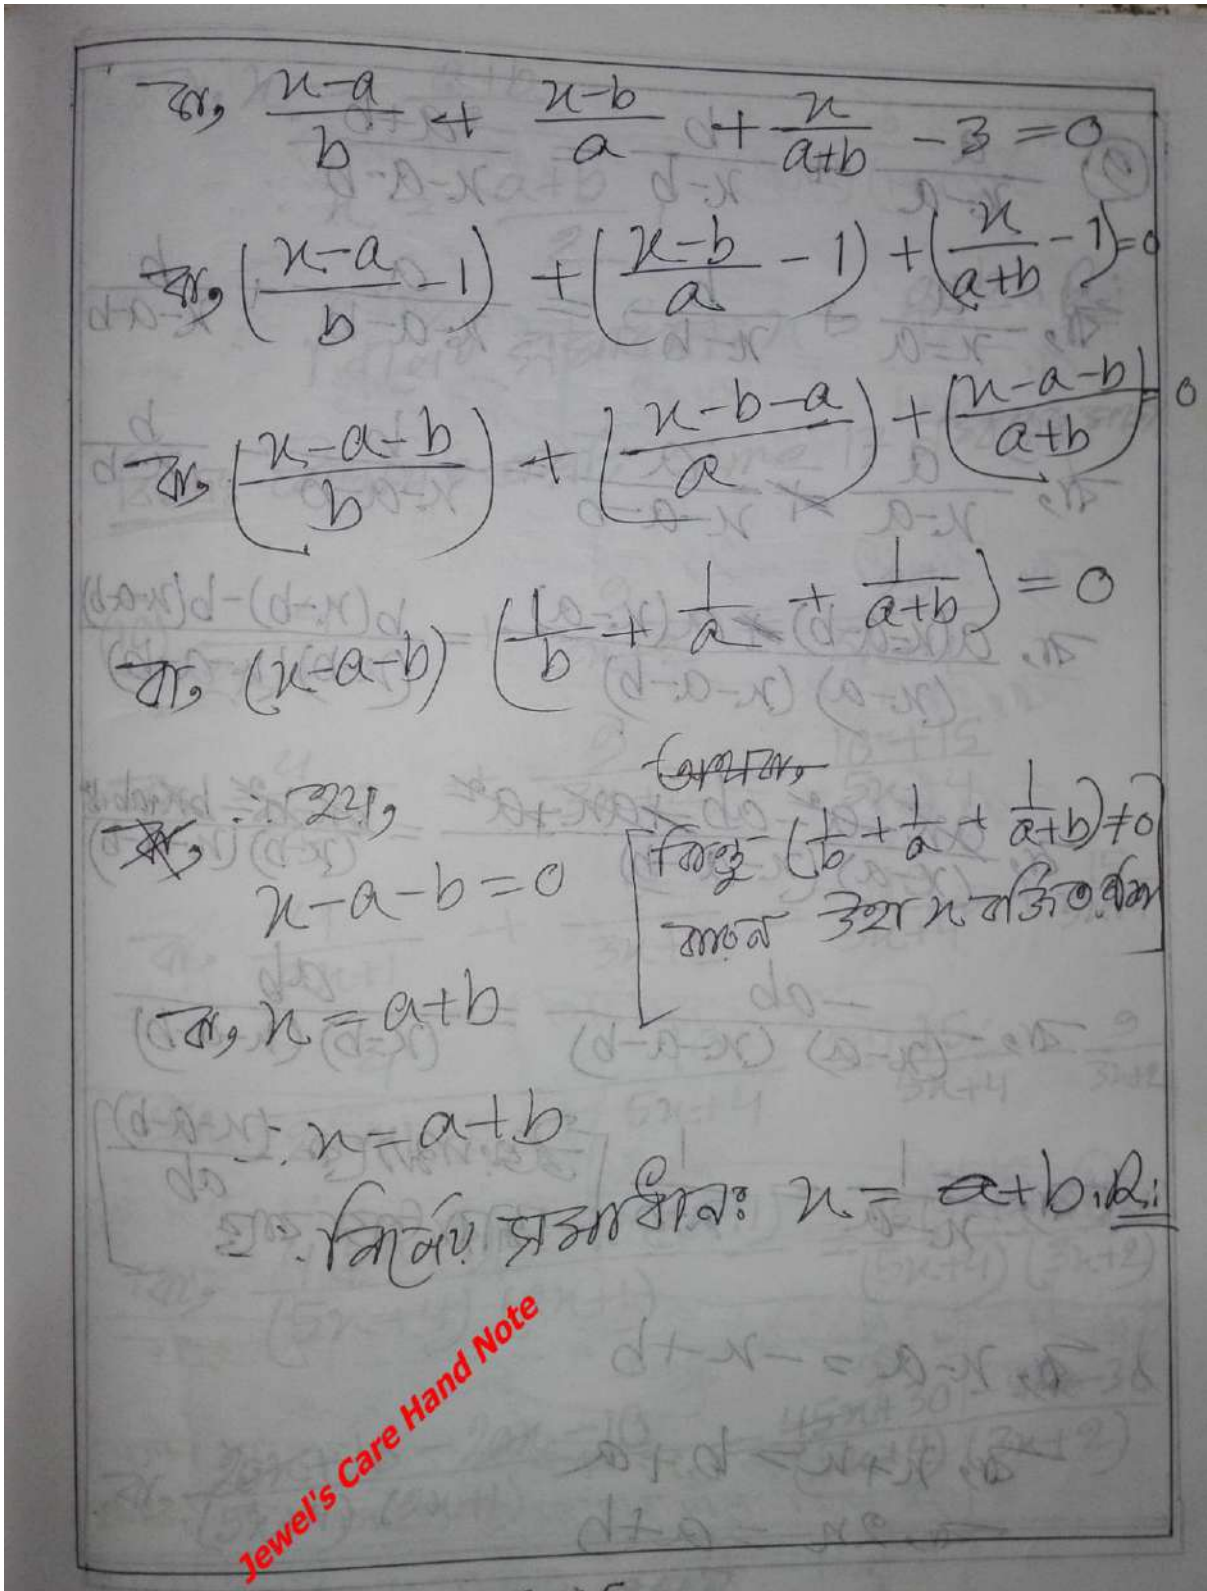 বা, (x-a)/b + (x-b)/a + x/(a+b) - 3 = 0
বা, ((x-a)/b - 1) + ((x-b)/a - 1) + (x/(a+b) - 1) = 0
বা, ((x-a-b)/b) + ((x-b-a)/a) + ((x-a-b)/(a+b)) = 0
বা, (x-a-b) (1/b + 1/a + 1/(a+b)) = 0
∴ হয়,
x-a-b = 0
অথবা,
কিন্তু (1/b + 1/a + 1/(a+b)) ≠ 0
কারন উহা x বর্জিত রাশি
বা, x = a+b
∴ x = a+b
∴ নির্ণেয় সমাধানঃ x = a+b.
Jewel's Care Hand Note